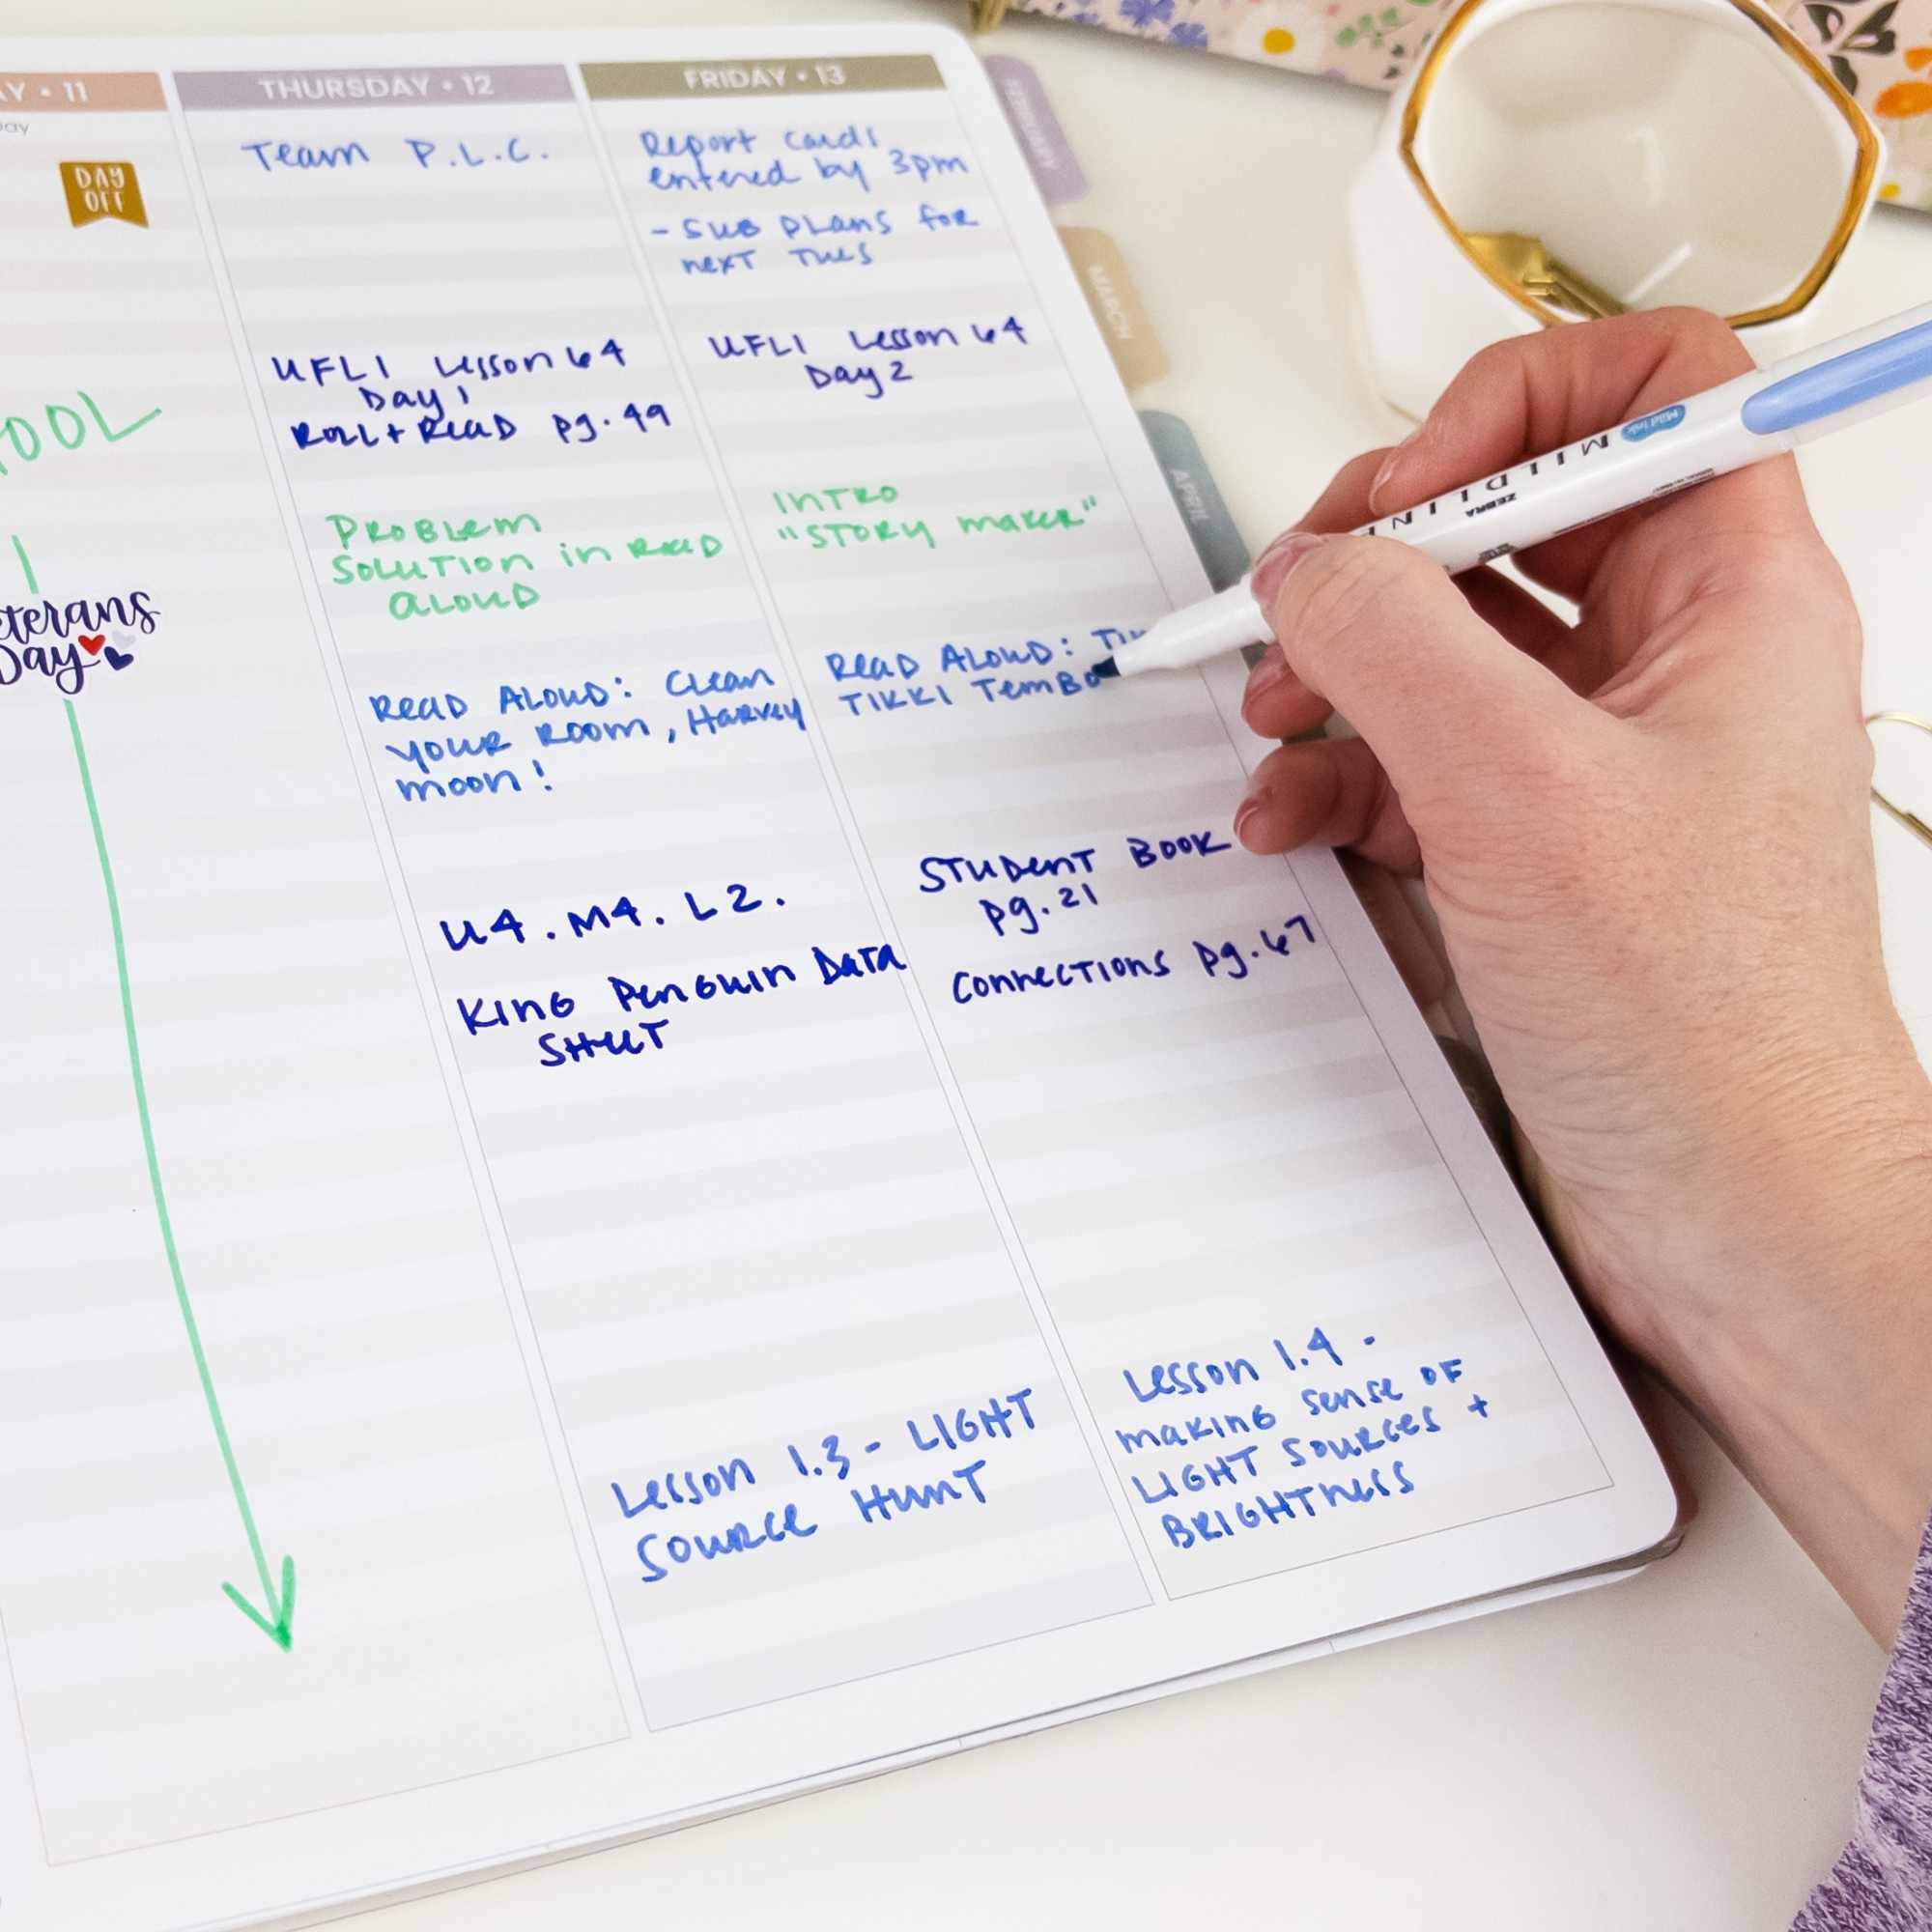 AY • 11
ay
DAY
OFF
OOL
eterans
Day
THURSDAY • 12
Team P.L.C.
UFLI Lesson 64
Day 1
Roll + Read pg. 49
Problem
Solution in Read
Aloud
Read Aloud: Clean
your room, Harvey
moon!
U4. M4. L2.
King Penguin Data
Sheet
Lesson 1.3 - Light
Source Hunt
FRIDAY • 13
Report Cards
entered by 3pm
- Sub Plans for
next Tues
UFLI Lesson 64
Day 2
Intro
"Story maker"
Read Aloud: Tik
Tikki Tembo
Student Book
pg. 21
Connections pg. 67
Lesson 1.4 -
making sense of
Light Sources +
Brightness
FEBRUARY
MARCH
APRIL
MILDLINE
ZEBRA
Mild Ink